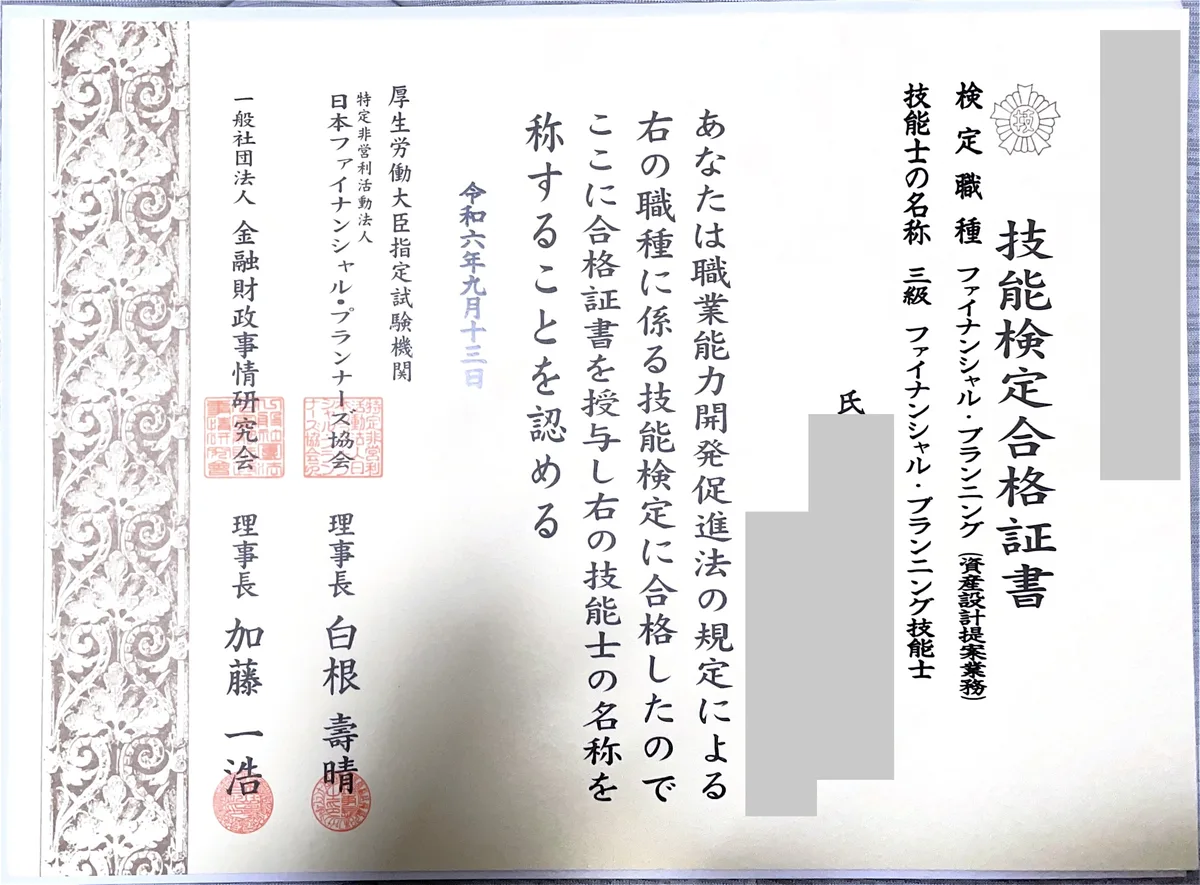 技
技能検定合格証書
検定職種 ファイナンシャル・プランニング(資産設計提案業務)
技能士の名称 三級 ファイナンシャル・プランニング技能士
氏
あなたは職業能力開発促進法の規定による
右の職種に係る技能検定に合格したので
ここに合格証書を授与し右の技能士の名称を
称することを認める
令和六年九月十三日
厚生労働大臣指定試験機関
特定非営利活動法人
日本ファイナンシャル・プランナーズ協会 理事長 白根 壽晴
一般社団法人 金融財政事情研究会 理事長 加藤 一浩